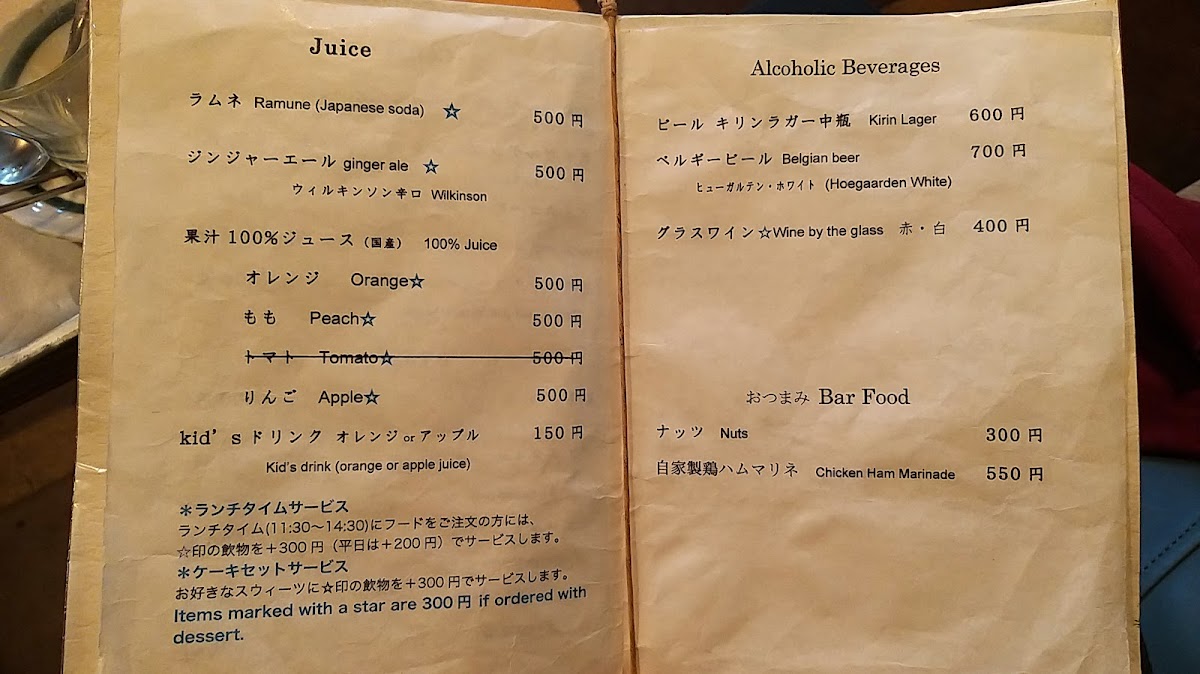 Juice
ラムネ Ramune (Japanese soda) ☆ 500 円
ジンジャーエール ginger ale ☆ 500 円
ウィルキンソン辛口 Wilkinson
果汁 100%ジュース (国産) 100% Juice
オレンジ Orange☆ 500 円
もも Peach☆ 500 円
トマト Tomato☆ 500 円
りんご Apple☆ 500 円
kid's ドリンク オレンジ or アップル 150 円
Kid's drink (orange or apple juice)
＊ランチタイムサービス
ランチタイム(11:30〜14:30)にフードをご注文の方には、
☆印の飲物を＋300 円（平日は＋200 円）でサービスします。
＊ケーキセットサービス
お好きなスウィーツに☆印の飲物を＋300 円でサービスします。
Items marked with a star are 300 円 if ordered with
dessert.
Alcoholic Beverages
ビール キリンラガー中瓶 Kirin Lager 600 円
ベルギービール Belgian beer 700 円
ヒューガルデン・ホワイト (Hoegaarden White)
グラスワイン☆Wine by the glass 赤・白 400 円
おつまみ Bar Food
ナッツ Nuts 300 円
自家製鶏ハムマリネ Chicken Ham Marinade 550 円